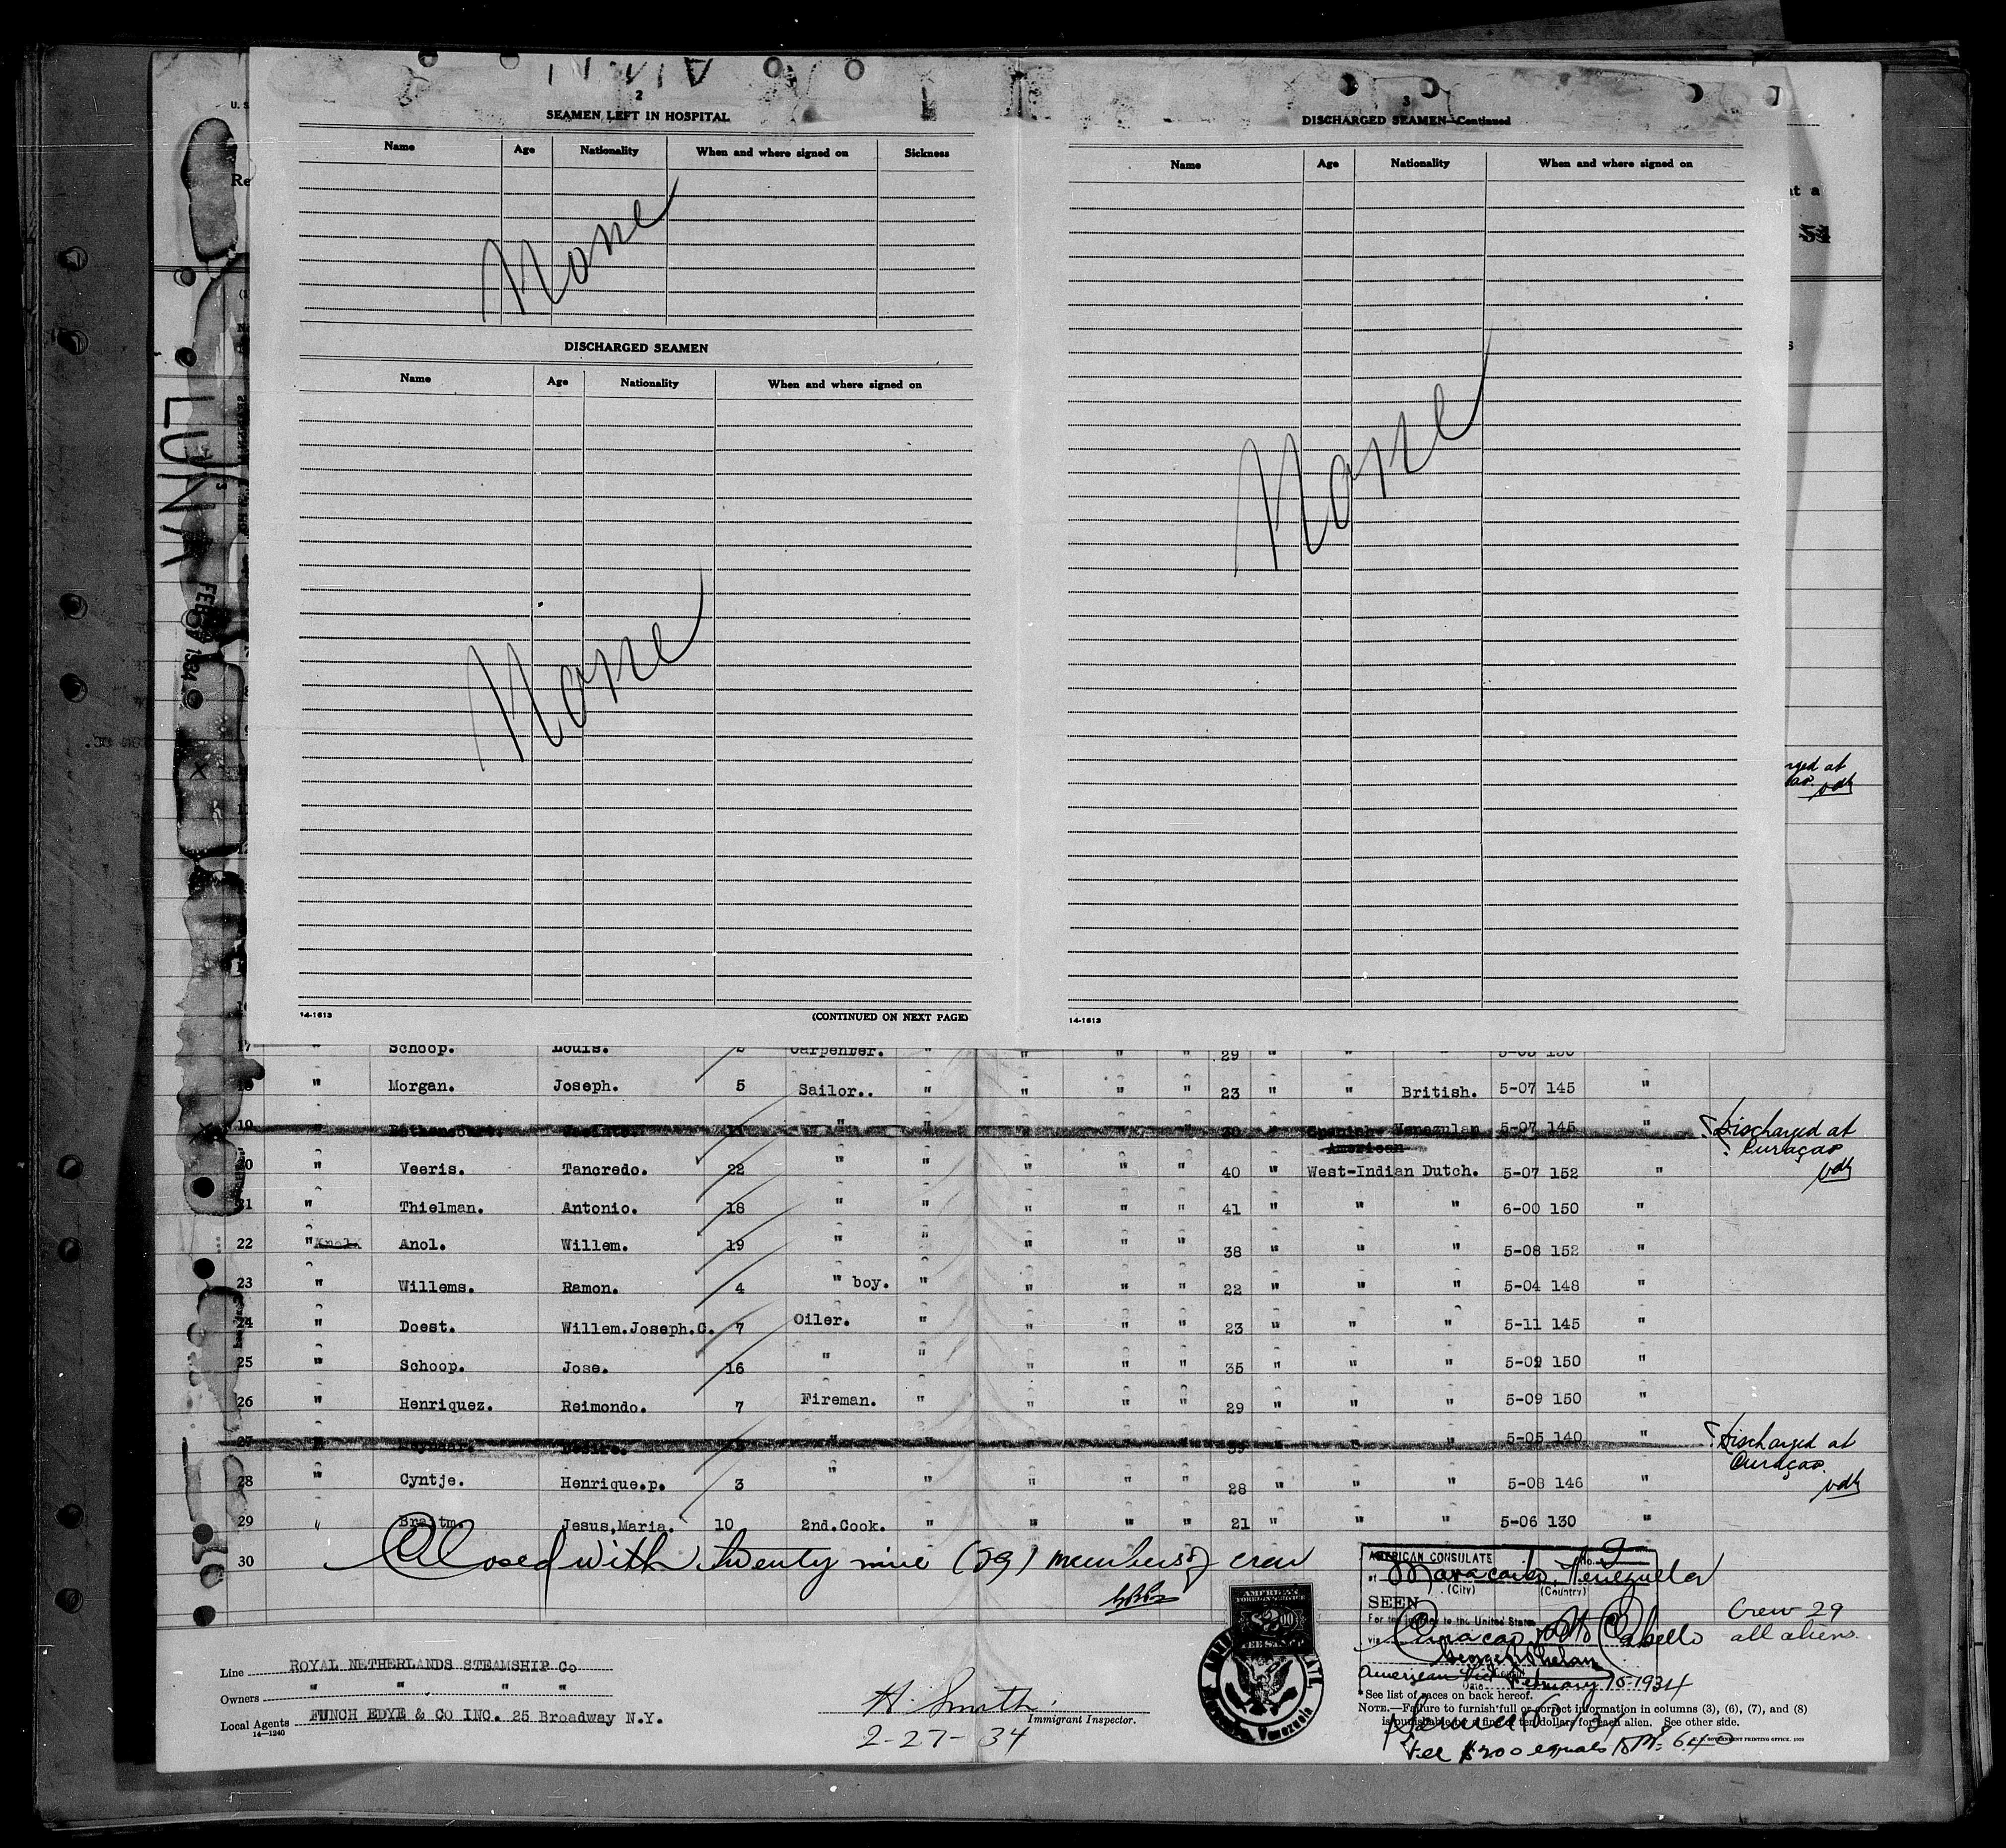 2
SEAMEN LEFT IN HOSPITAL
Name Age Nationality When and where signed on Sickness
None
DISCHARGED SEAMEN
Name Age Nationality When and where signed on
None
14-1613 (CONTINUED ON NEXT PAGE)
3
DISCHARGED SEAMEN—Continued
Name Age Nationality When and where signed on
None
14-1613
U. S.
Re
at a
51
LUNA
FEB 1934
17 " Schoop. Louis. Carpenter. " " " " 29 " " "
18 " Morgan. Joseph. 5 Sailor.. " " " " 23 " " British. 5-07 145 "
19 " " " " " 30 " Spanish American Venezulan 5-07 145 " Discharged at Curaçao vdh
20 " Veeris. Tancredo. 22 " " " " " 40 " West-Indian Dutch. 5-07 152 "
21 " Thielman. Antonio. 18 " " " " " 41 " " " 6-00 150 "
22 " Knol Anol. Willem. 19 " " " " " 38 " " " 5-08 152 "
23 " Willems. Ramon. 4 " boy. " " " " 22 " " " 5-04 148 "
24 " Doest. Willem.Joseph.C. 7 Oiler. " " " " 23 " " " 5-11 145 "
25 " Schoop. Jose. 16 " " " " " 35 " " " 5-09 150 "
26 " Henriquez. Reimondo. 7 Fireman. " " " " 29 " " " 5-09 150 "
27 " " " " " " 39 " " " 5-05 140 " Discharged at Curaçao. vdh
28 " Cyntje. Henrique.p. 3 " " " " " 28 " " " 5-08 146 "
29 " Jesus,Maria. 10 2nd.Cook. " " " " 21 " " " 5-06 130 "
30 Closed with twenty nine (29) members of crew
AMERICAN CONSULATE No. 2
at Maracaibo, Venezuela
(City) (Country)
SEEN
For the journey to the United States
via Curacao, Pto Cabello
American Vice Consul
Date February 10-1934
Crew 29
all aliens.
Line ROYAL NETHERLANDS STEAMSHIP Co
Owners " " " "
Local Agents FUNCH EDYE & CO INC. 25 Broadway N.Y.
14—1240
H. Smith.
Immigrant Inspector.
2-27-34
* See list of races on back hereof.
NOTE.—Failure to furnish full or correct information in columns (3), (6), (7), and (8)
is punishable by a fine of ten dollars for each alien. See other side.
U. S. GOVERNMENT PRINTING OFFICE
Fee $2.00 equals Bs. 6.40